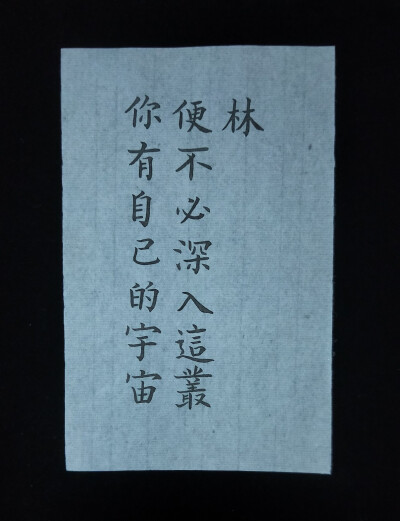 你有自己的宇宙
便不必深入這叢
林